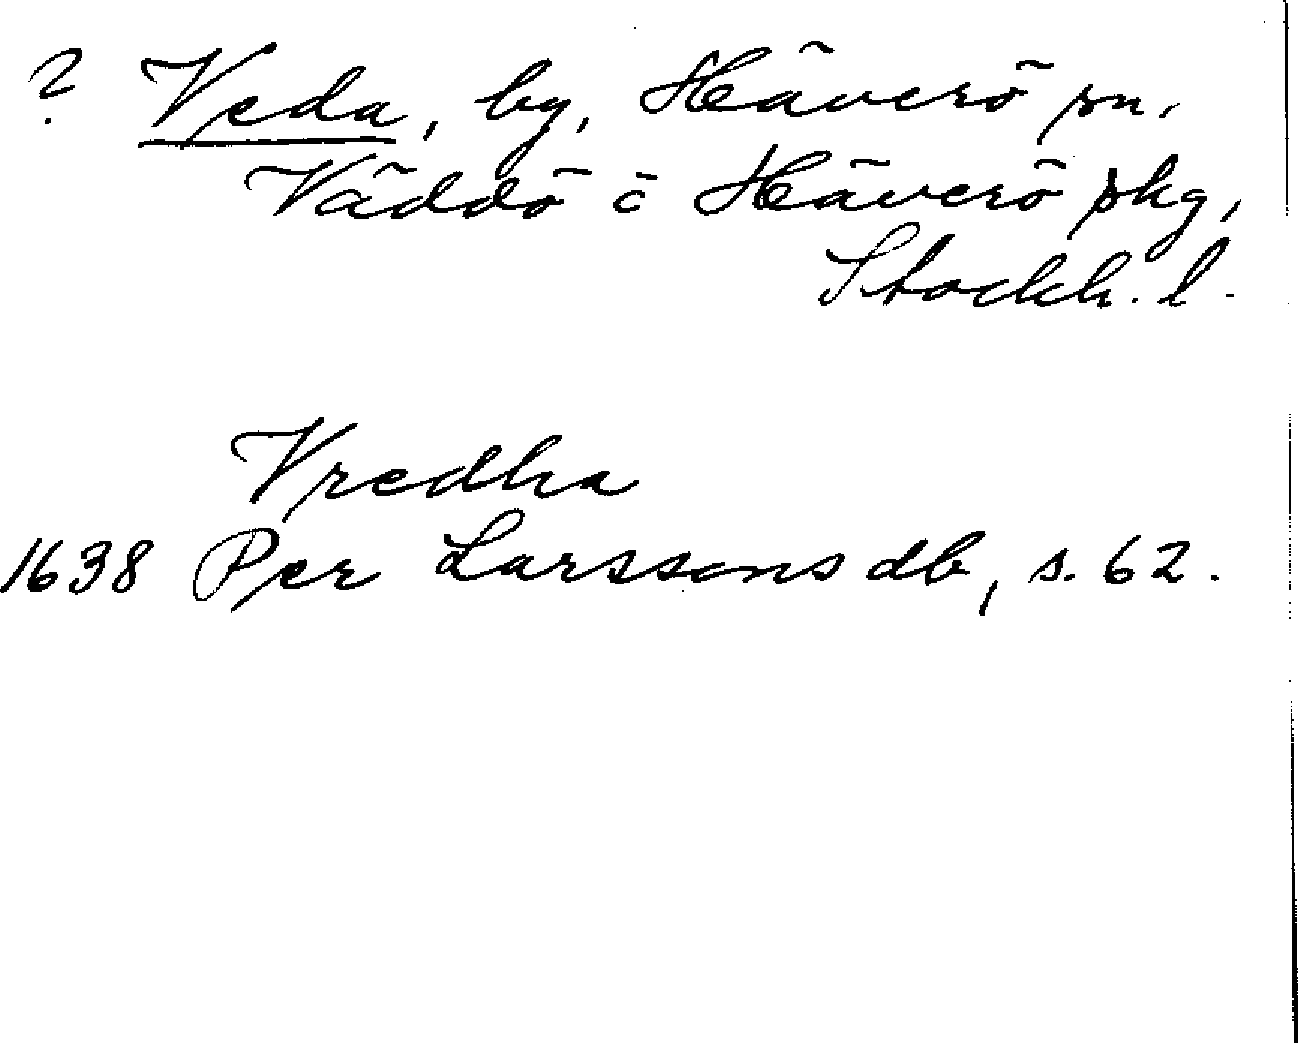 ? Veda, by, Häverö sn,
Väddö o Häverö skg,
Stockh. l.
Vredha
1638 Per Larssons db, s. 62.